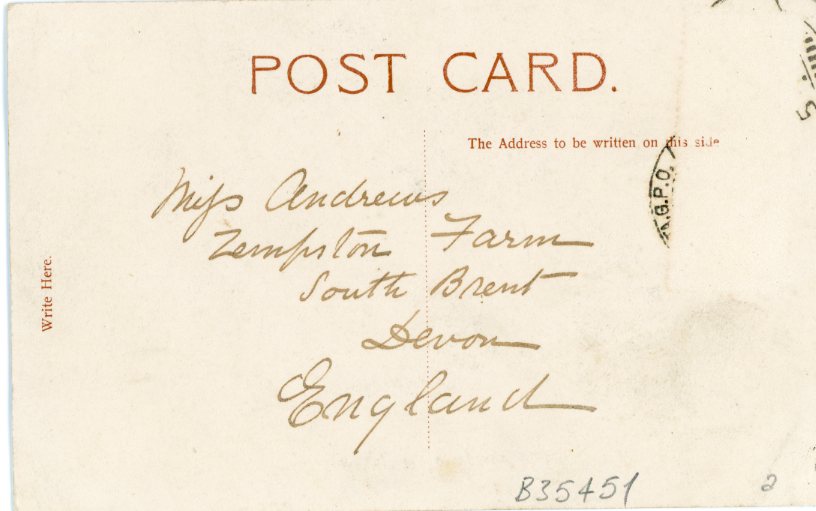 POST CARD.
The Address to be written on this side
Write Here.
Miss Andrews
Zempston Farm
South Brent
Devon
England
.G.P.O.
B35451
2